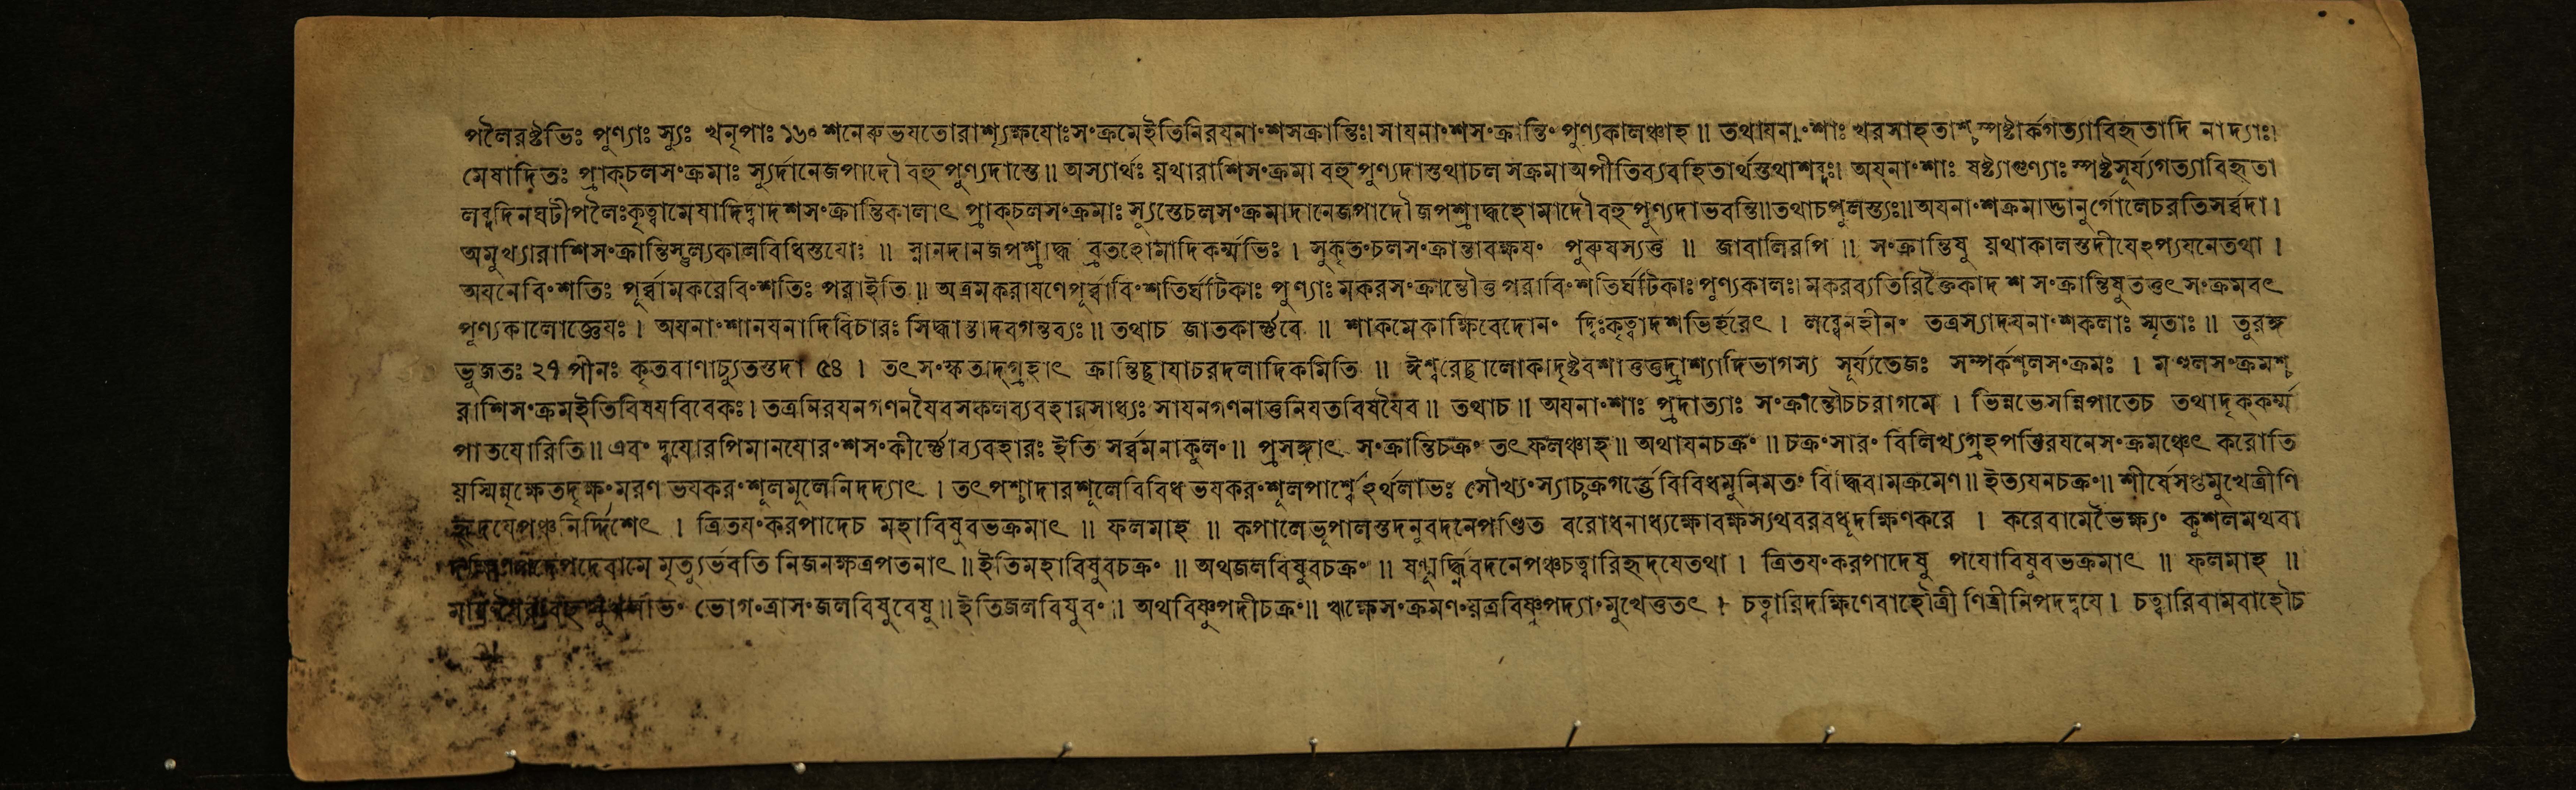 পলৈরষ্টভিঃ পুণ্যাঃ স্যুঃ খনৃপাঃ ১৬০ শনেরুভযতোরাশ্যৃক্ষযোঃসংক্রমেইতিনিরযনাংশসক্রান্তিঃ। সাযনাংশসংক্রান্তিং পুণ্যকালঞ্চাহ ॥ তথাযনাংশাঃ খরসাহতাশ্চ স্পষ্টার্কগত্যাবিহৃতাদি নাদ্যাঃ।
মেষাদিতঃ প্রাক্চলসংক্রমাঃ স্যুর্দানেজপাদৌ বহু পুণ্যদাস্তে ॥ অস্যার্থঃ য়থারাশিসংক্রমা বহু পুণ্যদাস্তথাচল সংক্রমাঅপীতিব্যবহিতার্থস্তথাশব্দঃ। অয়নাংশাঃ ষষ্ট্যাগুণ্যাঃ স্পষ্টসূর্য্যগত্যাবিহৃতা
লব্ধদিনঘটীপলৈঃকৃত্বামেষাদিদ্বাদশসংক্রান্তিকালাৎ প্রাক্চলসংক্রমাঃ স্যুস্তেচলসংক্রমাদানেজপাদৌ জপশ্রাদ্ধহোমাদৌ বহু পুণ্যদাভবন্তি॥ তথাচপুলস্ত্যঃ॥ অযনাংশক্রমাদ্ভানুর্গোলেচরতিসর্ব্বদা।
অমুখ্যারাশিসংক্রান্তিস্তুল্যকালবিধিস্তযোঃ ॥ স্নানদানজপশ্রাদ্ধ ব্রতহোমাদিকর্ম্মভিঃ । সুকৃতংচলসংক্রান্তাবক্ষযং পুরুষস্যত্ত ॥ জাবালিরপি ॥ সংক্রান্তিষু য়থাকালস্তদীযেঽপ্যযনেতথা ।
অযনেবিংশতিঃ পূর্ব্বামকরেবিংশতিঃ পরাইতি ॥ অত্রমকরাযণেপূর্ব্বাবিংশতির্ঘটিকাঃ পুণ্যাঃ মকরসংক্রান্তৌত্ত পরাবিংশতির্ঘটিকাঃ পুণ্যকালঃ। মকরব্যতিরিক্তৈকাদ শ সংক্রান্তিষুতত্তৎসংক্রমবৎ
পুণ্যকালোজ্ঞেযঃ । অযনাংশানযনাদিবিচারঃ সিদ্ধান্তাদবগন্তব্যঃ ॥ তথাচ জাতকার্ণ্ণবে ॥ শাকমেকাক্ষিবেদোনং দ্বিঃকৃত্বাদশভির্হরেৎ । লব্ধেনহীনং তত্রস্যাদযনাংশকলাঃ স্মৃতাঃ ॥ তুরঙ্গ
ভুজতঃ ২৭ পীনঃ কৃতবাণাচ্যুতস্তদা ৫৪ । তৎসংস্কৃতাদ্গ্রহাৎ ক্রান্তিচ্ছাযাচরদলাদিকমিতি ॥ ঈশ্বরেচ্ছালোকাদৃষ্টবশাত্তত্তদ্রাশ্যাদিভাগস্য সূর্য্যতেজঃ সম্পর্কশ্চলসংক্রমঃ । মণ্ডলসংক্রমশ্চ
রাশিসংক্রমইতিবিষযবিবেকঃ। তত্রনিরযনগণনযৈবসকলব্যবহারসাধ্যঃ সাযনগণনাত্তনিযতবিষযৈব ॥ তথাচ ॥ অযনাংশাঃ প্রদাত্যাঃ সংক্রান্তৌচচরাগমে । ভিন্নভেসন্নিপাতেচ তথাদৃক্কর্ম্ম
পাতযোরিতি ॥ এবং দ্বযোরপিমানযোরংশসংকীর্ত্তোব্যবহারঃ ইতি সর্ব্বমনাকুলং ॥ প্রসঙ্গাৎ সংক্রান্তিচক্রং তৎফলঞ্চাহ ॥ অথাযনচক্রং ॥ চক্রংসারং বিলিখ্যগ্রহপত্তিরযনেসংক্রমঞ্চেৎ করোতি
য়স্মিন্নৃক্ষেতদৃক্ষংমরণ ভযকরংশূলমূলেনিদদ্যাৎ । তৎপশ্চাদারশূলেবিবিধ ভযকরংশূলপার্শ্বেঽর্থলাভঃ সৌখ্যংস্যাচ্চক্রগর্ভেবিবিধমুনিমতং বিদ্ধবামক্রমেণ ॥ ইত্যযনচক্রং॥ শীর্ষেসপ্তমুখেত্রীণি
হৃদযেপঞ্চনির্দ্দিশেৎ । ত্রিতযংকরপাদেচ মহাবিষুবভক্রমাৎ ॥ ফলমাহ ॥ কপালেভূপালস্তদনুবদনেপণ্ডিত বরোধনাধ্যক্ষোবক্ষস্যথবরবধূদক্ষিণকরে । করেবামেভৈক্ষ্যং কুশলমথবা
পদেবামে মৃত্যুর্ভবতি নিজনক্ষত্রপতনাৎ ॥ ইতিমহাবিষুবচক্রং ॥ অথজলবিষুবচক্রং ॥ ষণ্মূর্দ্ধ্নিবদনেপঞ্চচত্বারিহৃদযেতথা । ত্রিতযংকরপাদেষু পযোবিষুবভক্রমাৎ ॥ ফলমাহ ॥
ভোগংত্রাসংজলবিষুবেষু ॥ ইতিজলবিষুবং ॥ অথবিষ্ণুপদীচক্রং॥ ঋক্ষেসংক্রমণংয়ত্রবিষ্ণুপদ্যাংমুখেত্ততৎ । চত্বারিদক্ষিণেবাহৌত্রীণিত্রীনিপদদ্বযে । চত্বারিবামবাহৌচ